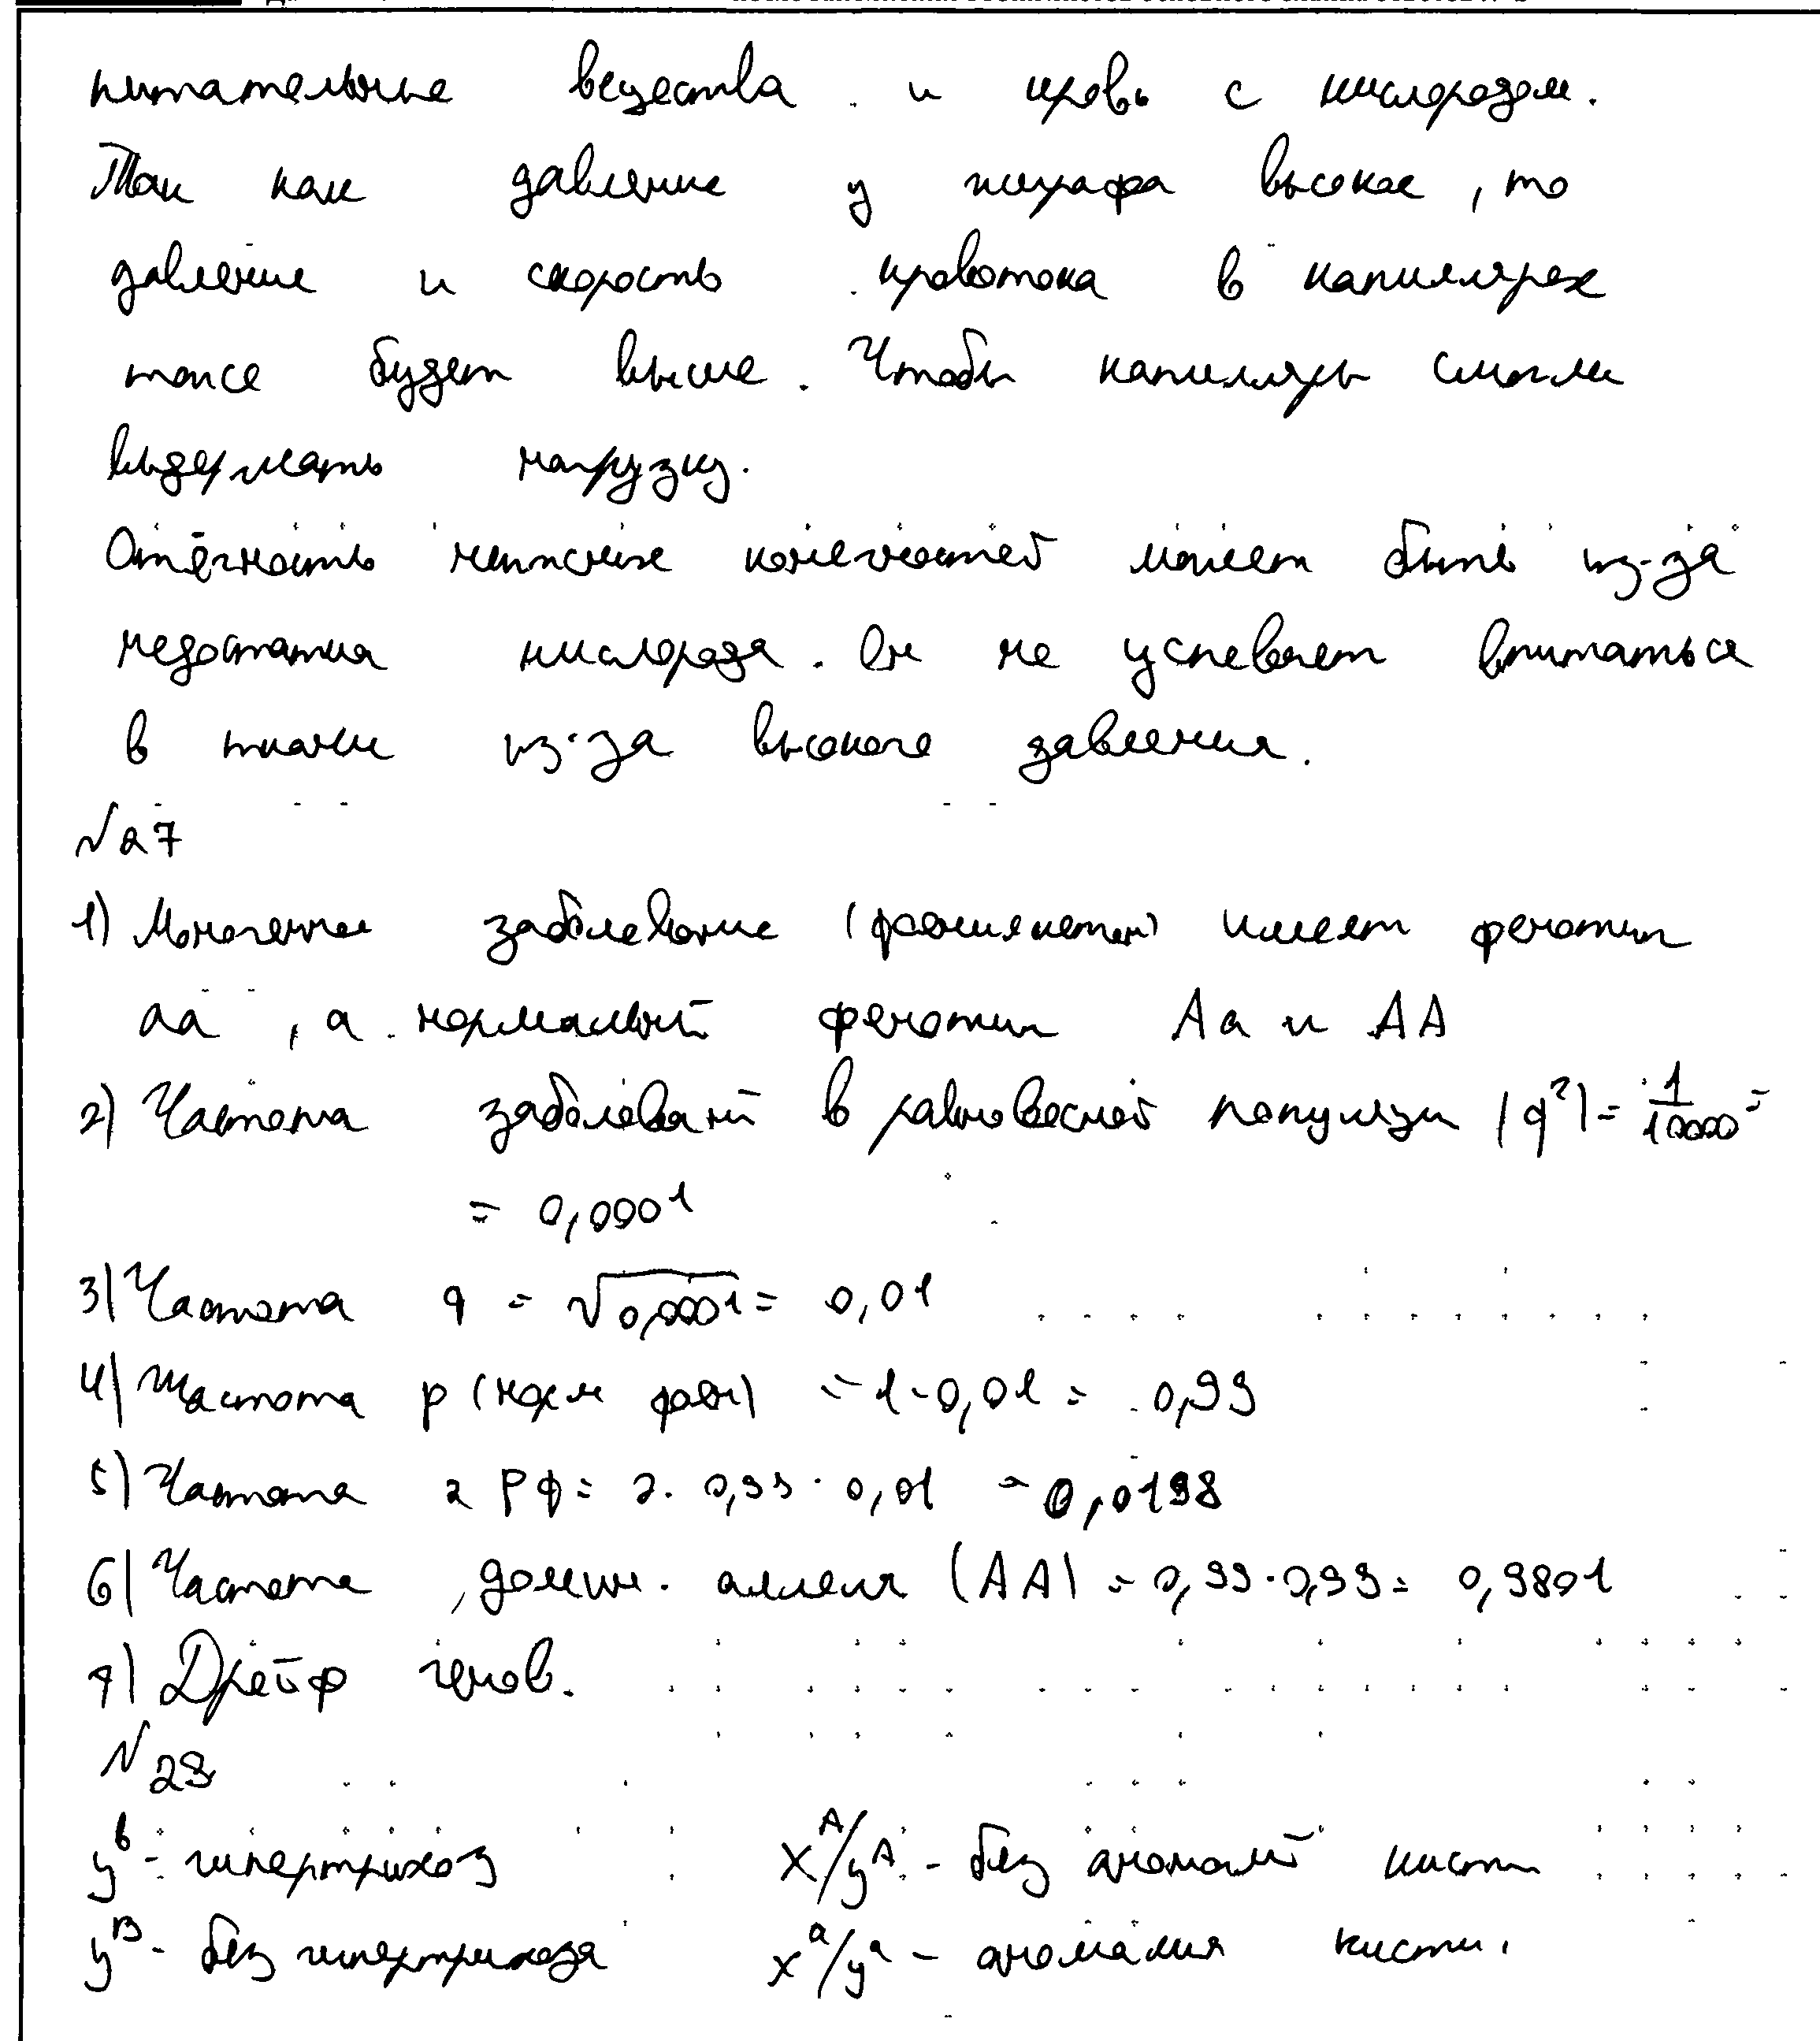 питательные вещества и кровь с кислородом.
Так как давление у жирафа высокое, то
давление и скорость кровотока в капиллярах
тоже будет выше. Чтобы капилляры смогли
выдержать нагрузку.
Отёчность нижних конечностей может быть из-за
недостатка кислорода. Он не успевает впитаться
в ткани из-за высокого давления.
№27
1) Моногенное заболевание (фенилкетон) имеет фенотип
aa, а нормальный фенотип Aa и AA
2) Частота заболеваний в равновесной популяци (q²) = 1/10000 =
= 0,0001
3) Частота q = √0,0001 = 0,01
4) Частота p (норм фен) = 1-0,01 = 0,99
5) Частота 2pq = 2·0,99·0,01 = 0,0198
6) Частота домин. аллеля (AA) = 0,99·0,99 = 0,9801
7) Дрейф генов.
№28
y^b - гипертрихоз x^A/y^A - без аномалий кисти
y^B - без гипертрихоза x^a/y^a - аномалия кисти.